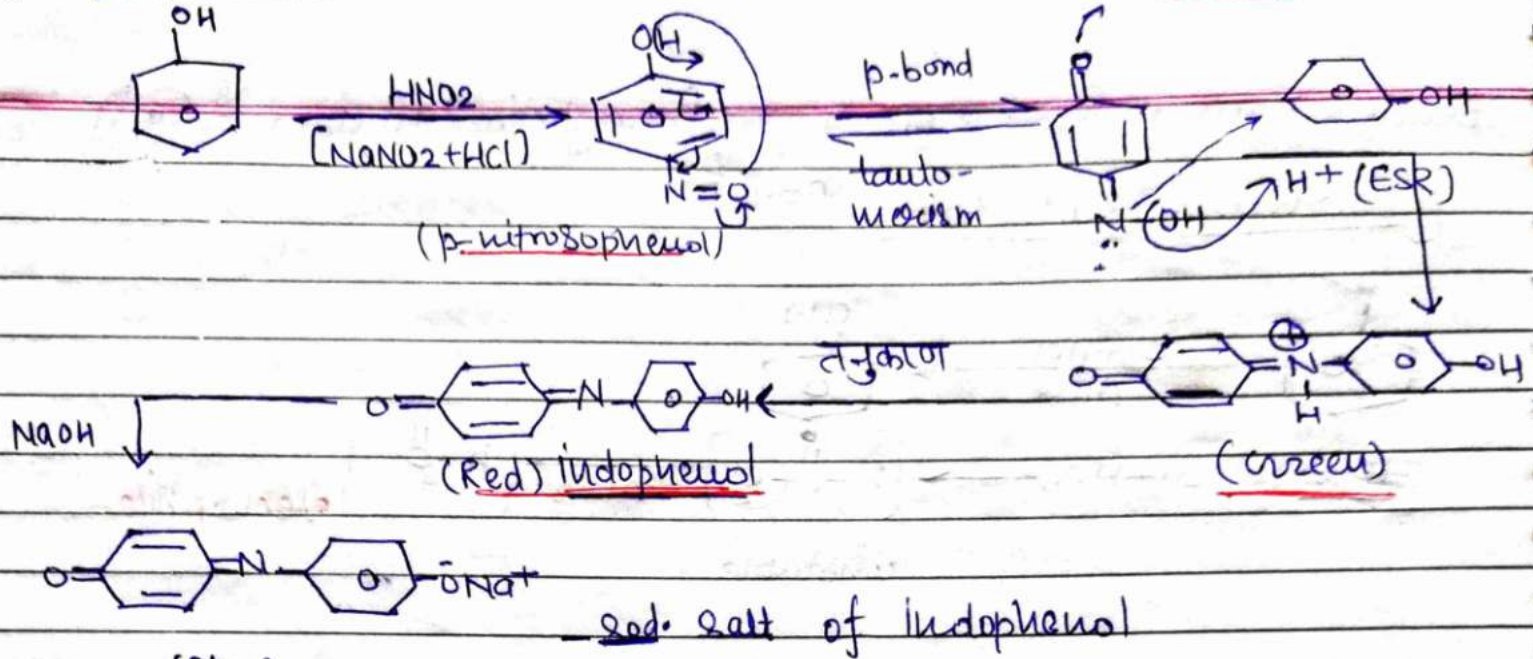 OH
HNO2
[NaNO2+HCl)
OH
N=O
(p-nitrosophenol)
p-bond
tauto-
merism
O
N-OH
OH
H+ (ESR)
O= =N- -OH
H
(Green)
तनुकरण
O= =N- -OH
(Red) indophenol
NaOH
O= =N- -ŌNa+
sod. salt of indophenol